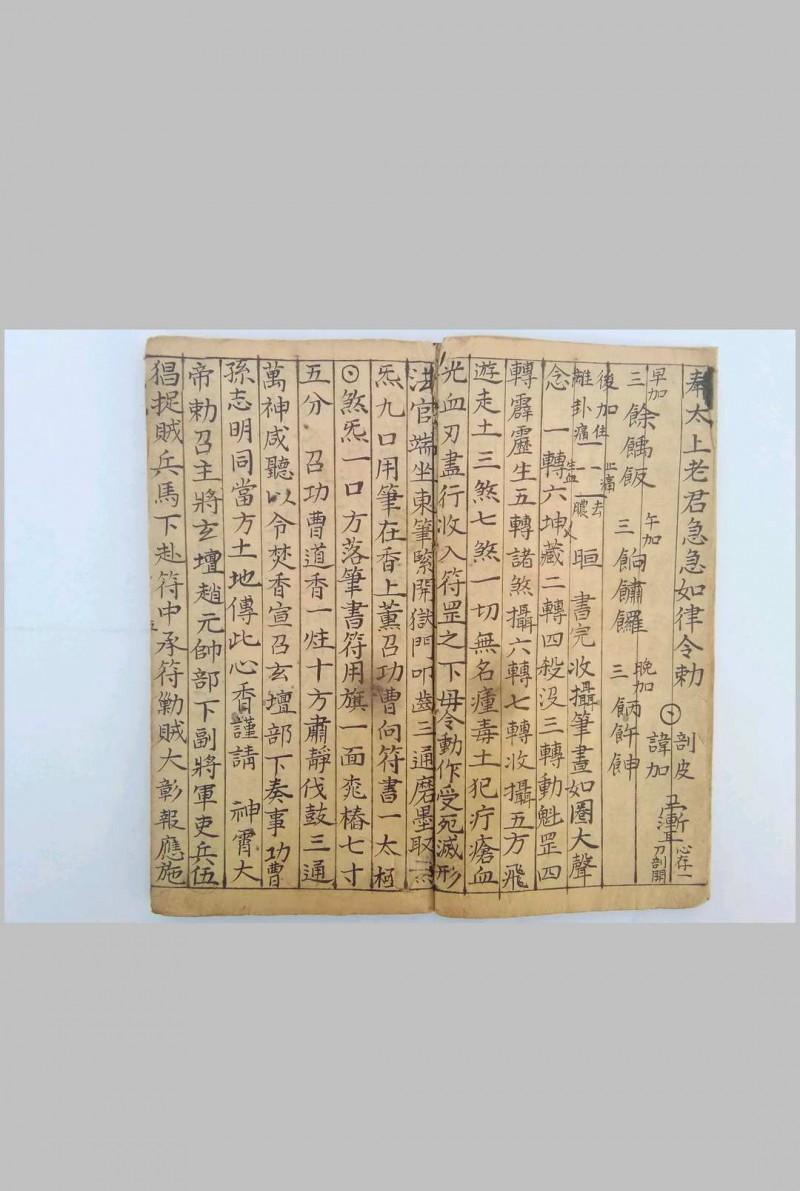 奉太上老君急急如律令勅
⊙剖皮
諱加
心存一
刀剖開
早加 午加 晚加
三
三
三
後加住 止痛 去
離卦痛一 生血 一膿
書完收攝筆畫如圈大聲
念一轉六坤藏二轉四殺没三轉動魁罡四
轉霹靂生五轉諸煞攝六轉七轉收攝五方飛
遊走土三煞七煞一切無名瘇毒土犯疔瘡血
光血刃盡行收入符罡之下毋令動作受死滅形
法官端坐東筆緊開獄門叩齒三通磨墨取
炁九口用筆在香上薰召功曹向符書一太極
⊙煞炁一口方落筆書符用旗一面兆樁七寸
五分 召功曹道香一炷十方肅靜伐鼓三通
萬神咸聽以令焚香宣召玄壇部下奏事功曹
孫志明同當方土地傳此心香謹請 神霄大
帝勅召主將玄壇趙元帥部下副將軍吏兵伍
猖捉賊兵馬下赴符中承符勦賊大彰報應施